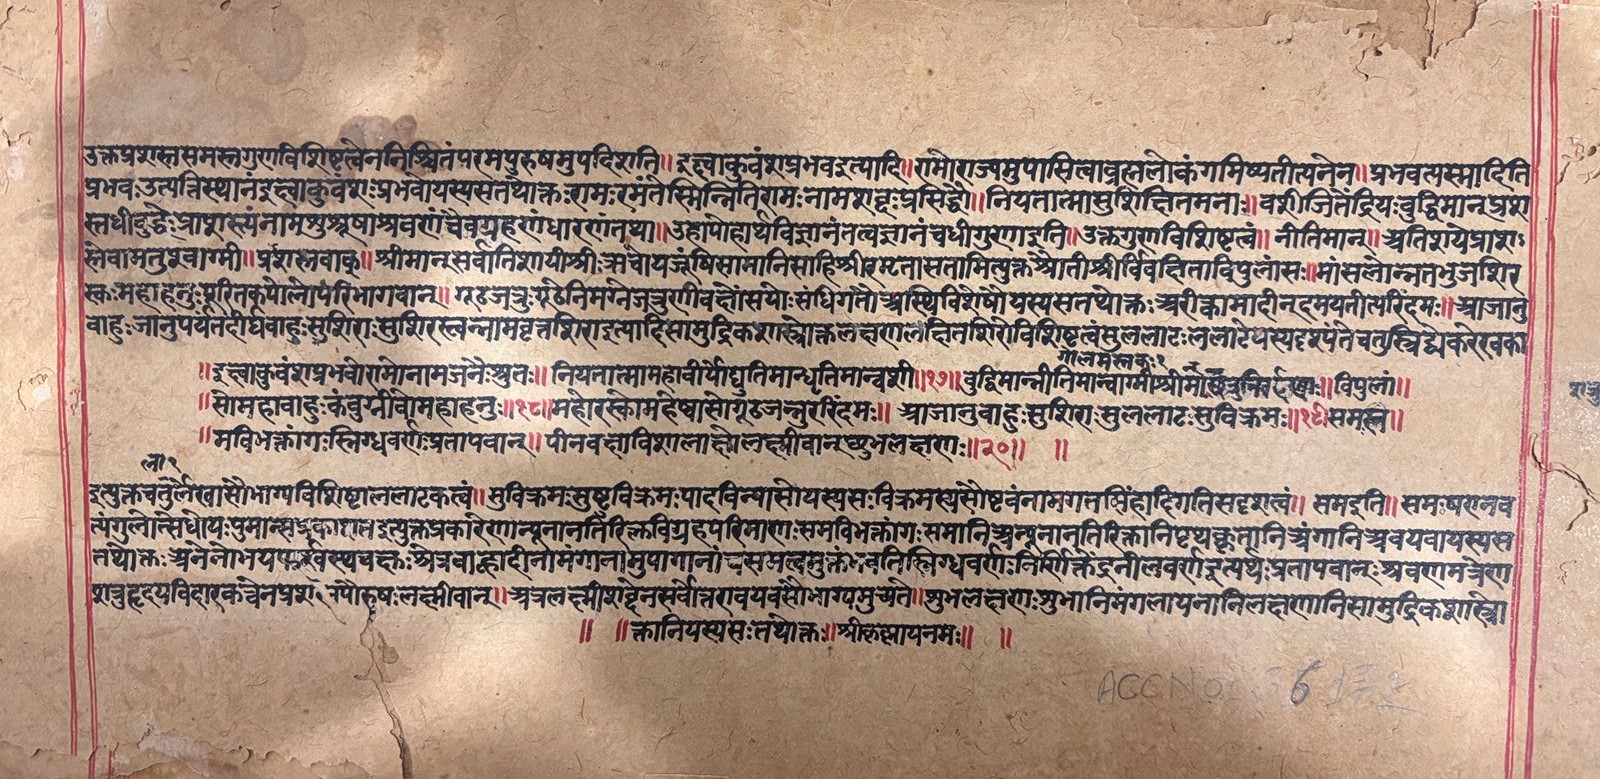 उक्तप्रशस्तसमस्तगुणविशिष्टत्वेननिश्चितंपरमपुरुषमुपदिशति॥ इक्ष्वाकुवंशप्रभवइत्यादि॥ रामोराज्यमुपासित्वाब्रह्मलोकंगमिष्यतीत्यनेन॥ प्रभवत्यस्मादिति
प्रभवः उत्पत्तिस्थानंइक्ष्वाकुवंशः प्रभवोयस्यसतथोक्तः रामः रमंतेस्मिन्नितिरामः नामशब्दः प्रसिद्धौ॥ नियतात्मासुशिक्षितमनाः॥ वशीजितेंद्रियः बुद्धिमान्प्रश
स्तधीः बुद्धेः प्राशस्त्यंनामशुश्रूषाश्रवणंचैवग्रहणंधारणंतथा॥ उहापोहार्थविज्ञानंतत्वज्ञानंचधीगुणाइति॥ उक्तगुणविशिष्टत्वं॥ नीतिमान्॥ अतिशयेप्राश
स्तेवामतुप्वाग्मी॥ प्रशस्तवाक्॥ श्रीमान्सर्वातिशायीश्रीः ऋचोयजूंषिसामानिसाहिश्रीरमृतासतामित्युक्त श्रीर्विवक्षिताविपुलांसः॥ मांसलोन्नतभुजशिर
स्कः महाहनुः पूरितकपोलोपरिभागवान्॥ गूढजत्रुः गूढेनिमग्नेजत्रुणीवक्षोंसयोः संधिगतौअस्थिविशेषौयस्यसतथोक्तः अरीन्कामादीन्दमयतीत्यरिंदमः॥ आजानु
बाहुः जानुपर्यंतदीर्घबाहुः सुशिराः सुशिरस्त्वन्नामवृत्तशिराइत्यादिसामुद्रिकशास्त्रोक्तलक्षणलक्षितशिरोविशिष्टत्वंसुललाटः ललाटेयस्यदृश्यंते
॥ इक्ष्वाकुवंशप्रभवोरामोनामजनैः श्रुतः॥ नियतात्मामहावीर्योद्युतिमान्धृतिमान्वशी॥१७॥ बुद्धिमान्नीतिमान्वाग्मीश्रीमान् विपुलां॥
॥ सोमहाबाहुः कंबुग्रीवोमहाहनुः॥१८॥ महोरस्कोमहेष्वासोगूढजत्रुररिंदमः॥ आजानुबाहुः सुशिराः सुललाटः सुविक्रमः॥१९॥ समस्त॥
॥ मविभक्तांगः स्निग्धवर्णः प्रतापवान्॥ पीनवक्षाविशालाक्षोलक्ष्मीवान्शुभलक्षणः॥२०॥ ॥
इत्युक्तचतुर्लेखासौभाग्यविशिष्टाललाटकत्वं॥ सुविक्रमः सुष्टुविक्रमः पादविन्यासोयस्यसः विक्रमस्यसौष्टवंनामगतसिंहादिगतिसदृशत्वं॥ समइति॥ समः षण्नव
त्यगुलोत्सेधोयः पुमान् इत्युक्तप्रकारेणान्यूनानतिरिक्तविग्रहपरिमाणः समविभक्तांगः समानिअन्यूनानतिरिक्तानिपृथक्कृतानिअंगानिअवयवायस्यस
तथोक्तः अनेनोभय अत्रबाह्वादीनामंगानामुपागानां स्निग्धवर्णः निर्णिक्तेंद्रनीलवर्णइत्यर्थः प्रतापवान् श्रवणमात्रेण
शत्रुहृदयविदारकत्वेनप्रश पौरुषः लक्ष्मीवान्॥ अत्रलक्ष्मीशब्देनसर्वोत्तरावयवसौभाग्यमुच्यते॥ शुभलक्षणः शुभानिमंगलायनानिलक्षणानिसामुद्रिकशास्त्रो
॥ ॥ क्तानियस्यसः तथोक्तः॥ श्रीकृष्णायनमः॥ ॥
ACC No